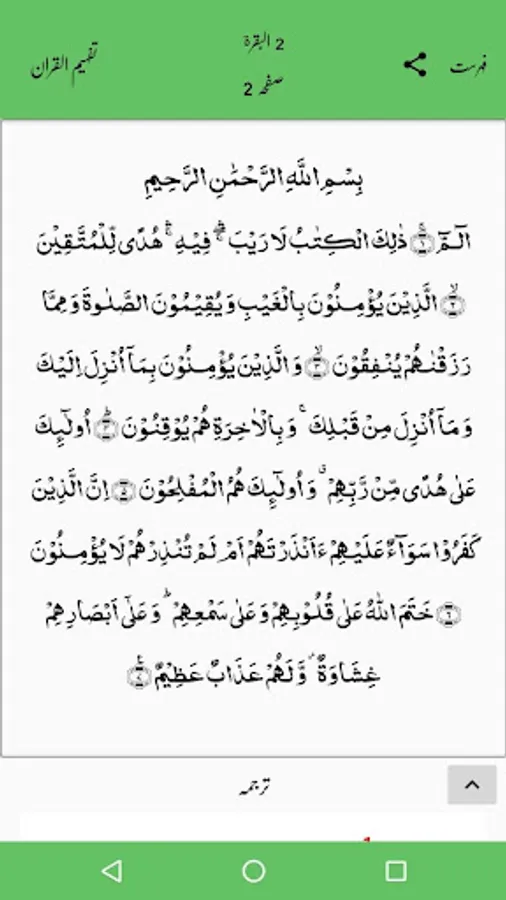 2 البقرۃ
فہرست
تفہیم القران
صفحہ 2
بِسْمِ اللَّهِ الرَّحْمَٰنِ الرَّحِيمِ
الٓمّٓ ۚ﴿۱﴾ ذٰلِكَ الْكِتٰبُ لَا رَيْبَ ۛۖ فِيْهِ ۛۚ هُدًى لِّلْمُتَّقِيْنَ
ۙ﴿۲﴾ الَّذِيْنَ يُؤْمِنُوْنَ بِالْغَيْبِ وَيُقِيْمُوْنَ الصَّلٰوةَ وَمِمَّا
رَزَقْنٰهُمْ يُنْفِقُوْنَ ۙ﴿۳﴾ وَالَّذِيْنَ يُؤْمِنُوْنَ بِمَاۤ اُنْزِلَ اِلَيْكَ
وَمَاۤ اُنْزِلَ مِنْ قَبْلِكَ ۚ وَبِالْاٰخِرَةِ هُمْ يُوْقِنُوْنَ ؕ﴿۴﴾ اُولٰٓئِكَ
عَلٰى هُدًى مِّنْ رَّبِّهِمْ ۗ وَاُولٰٓئِكَ هُمُ الْمُفْلِحُوْنَ ﴿۵﴾ اِنَّ الَّذِيْنَ
كَفَرُوْا سَوَآءٌ عَلَيْهِمْ ءَاَنْذَرْتَهُمْ اَمْ لَمْ تُنْذِرْهُمْ لَا يُؤْمِنُوْنَ
﴿۶﴾ خَتَمَ اللّٰهُ عَلٰى قُلُوْبِهِمْ وَعَلٰى سَمْعِهِمْ ؕ وَعَلٰۤى اَبْصَارِهِمْ
غِشَاوَةٌ ۫ وَّلَهُمْ عَذَابٌ عَظِيْمٌ ۠﴿۷﴾
ترجمہ